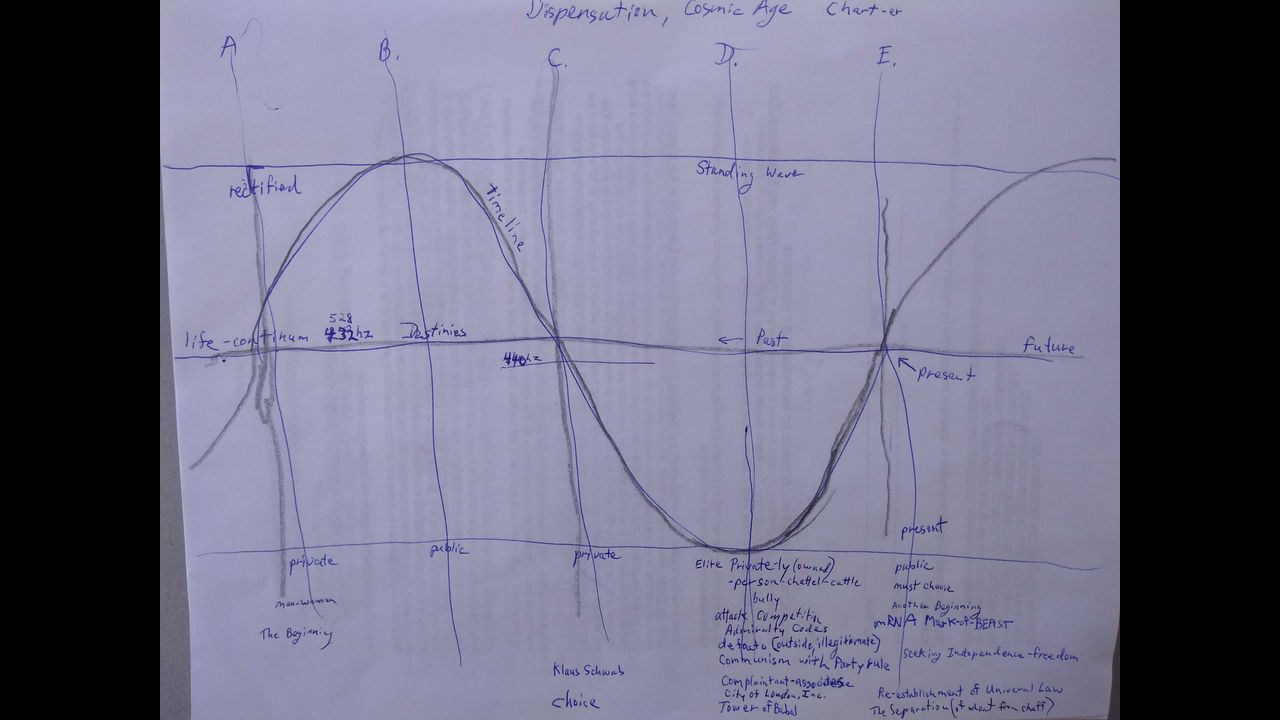 Dispensation, Cosmic Age Chart-er
A B. C. D. E.
rectified
Standing Wave
timeline
528
life-continum 432hz Destinies
Past
future
440hz
present
present
private
public
private
man-woman
The Beginning
Klaus Schwab
choice
Elite Private-ly (owned)
-person-chattel-cattle
bully
attack Competition
Admiralty Codes
defacto (outside, illegitamate)
Communism with Party rule
Complaintant-Associates
City of London, Inc.
Tower of Babal
public
must choose
Another Beginning
mRNA Mark-of-BEAST
seeking Independence-freedom
Re-establishment of Universal Law
The Separation (of wheat from chaff)